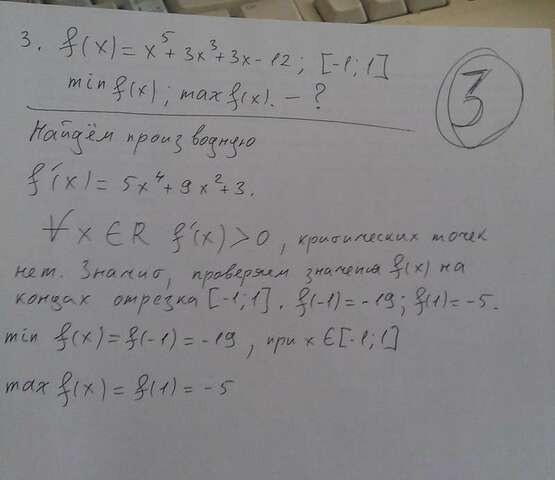 3. f(x) = x⁵ + 3x³ + 3x - 12; [-1; 1]
min f(x); max f(x). - ?
3
Найдём производную
f'(x) = 5x⁴ + 9x² + 3.
∀ x ∈ R f'(x) > 0, критических точек
нет. Значит, проверяем значения f(x) на
концах отрезка [-1; 1]. f(-1) = -19; f(1) = -5.
min f(x) = f(-1) = -19, при x ∈ [-1; 1]
max f(x) = f(1) = -5